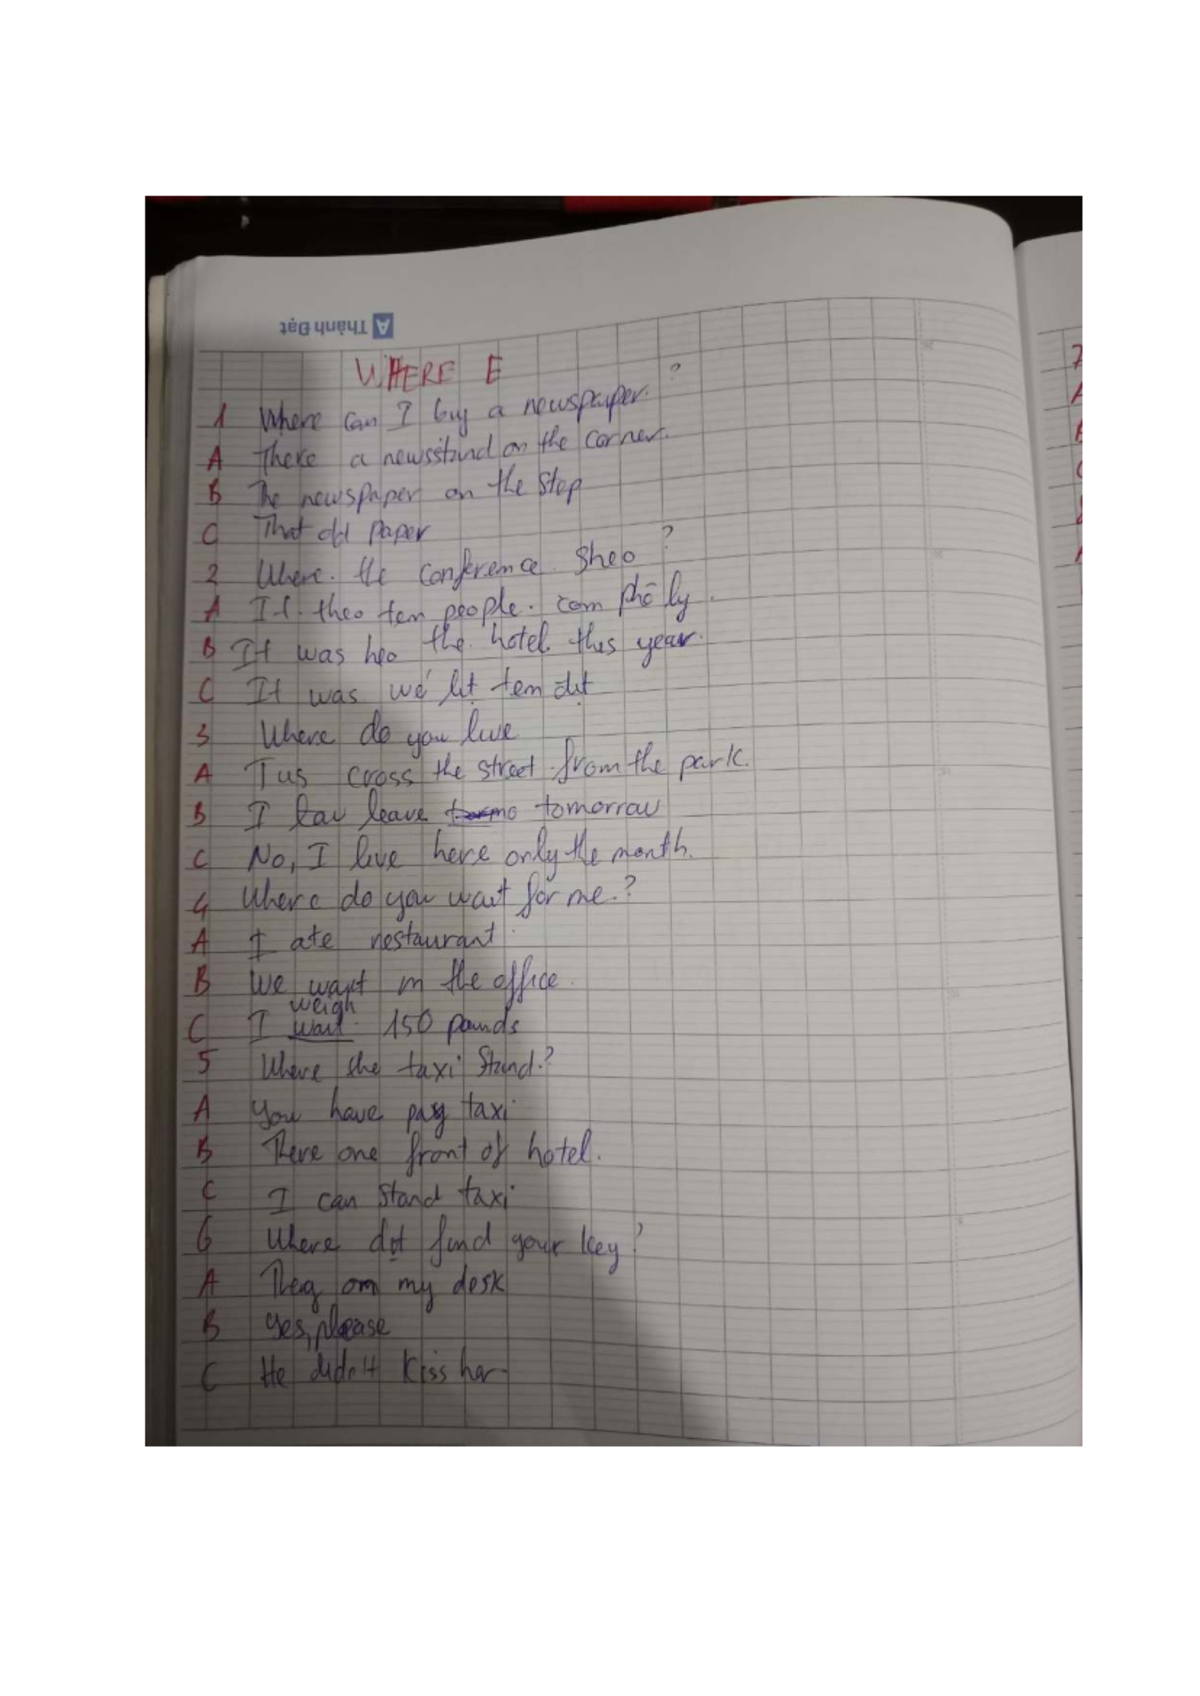 A Thành Đạt
WHERE E
1 Where can I buy a newspaper. ?
A There a newsstand on the corner.
B The newspaper on the step
C That old paper
2 Where. the conference. Sheo ?
A It. theo ten people. com phō ly.
B It was heo the hotel this year.
C It was wé lit tem dit
3 Where do you live
A Tus cross the street from the park.
B I leave tomorrow
C No, I live here only the month.
4 Where do you wait for me.?
A I ate restaurant
B We wait in the office.
weigh
C I wait. 150 pounds
5 Where the taxi Stand.?
A You have pay taxi
B There one front of hotel.
C I can Stand taxi
6 Where dit find your key?
A They on my desk
B Yes, please
C He didn't kiss her
7